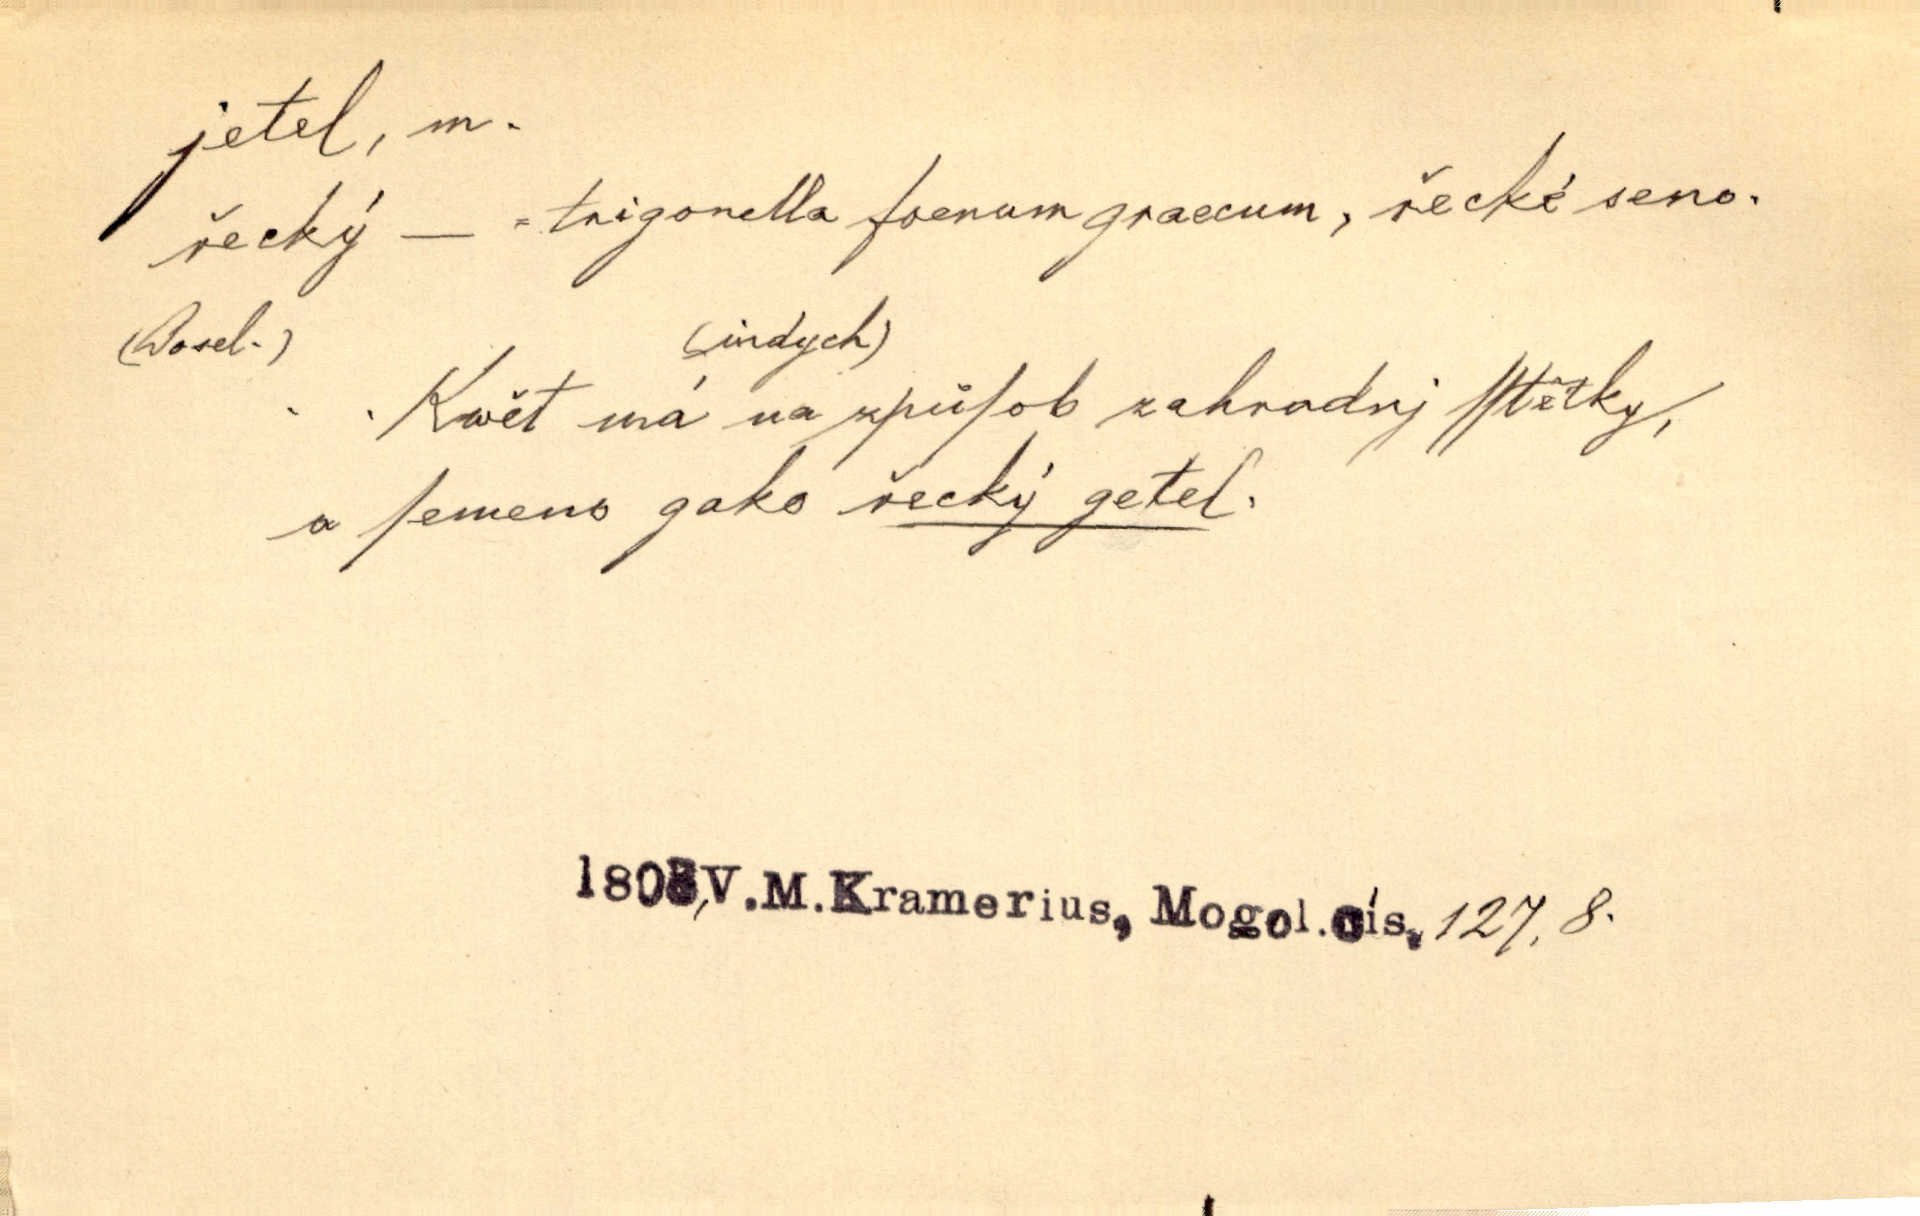 jetel, m.
řecký — = trigonella foenum graecum, řecké seno.
(Posel.) (indych)
. . Kwět má na způſob zahradnj ſſtěrky,
a ſemeno gako řecký getel.
1808, V.M.Kramerius, Mogol.cís. 127, 8.